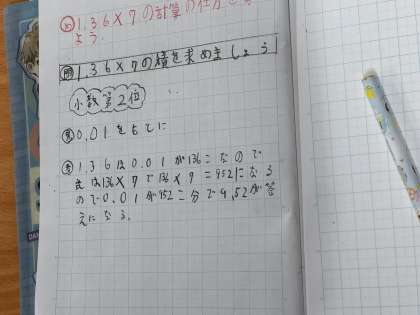 め 1.36×7の計算の仕方を考え
よう。
問 1.36×7の積を求めましょう
小数第2位
見 0.01をもとに
考 1.36は0.01が136こなので
式は136×7で136×7=952になる
ので0.01が952こ分で9.52が答
えになる。